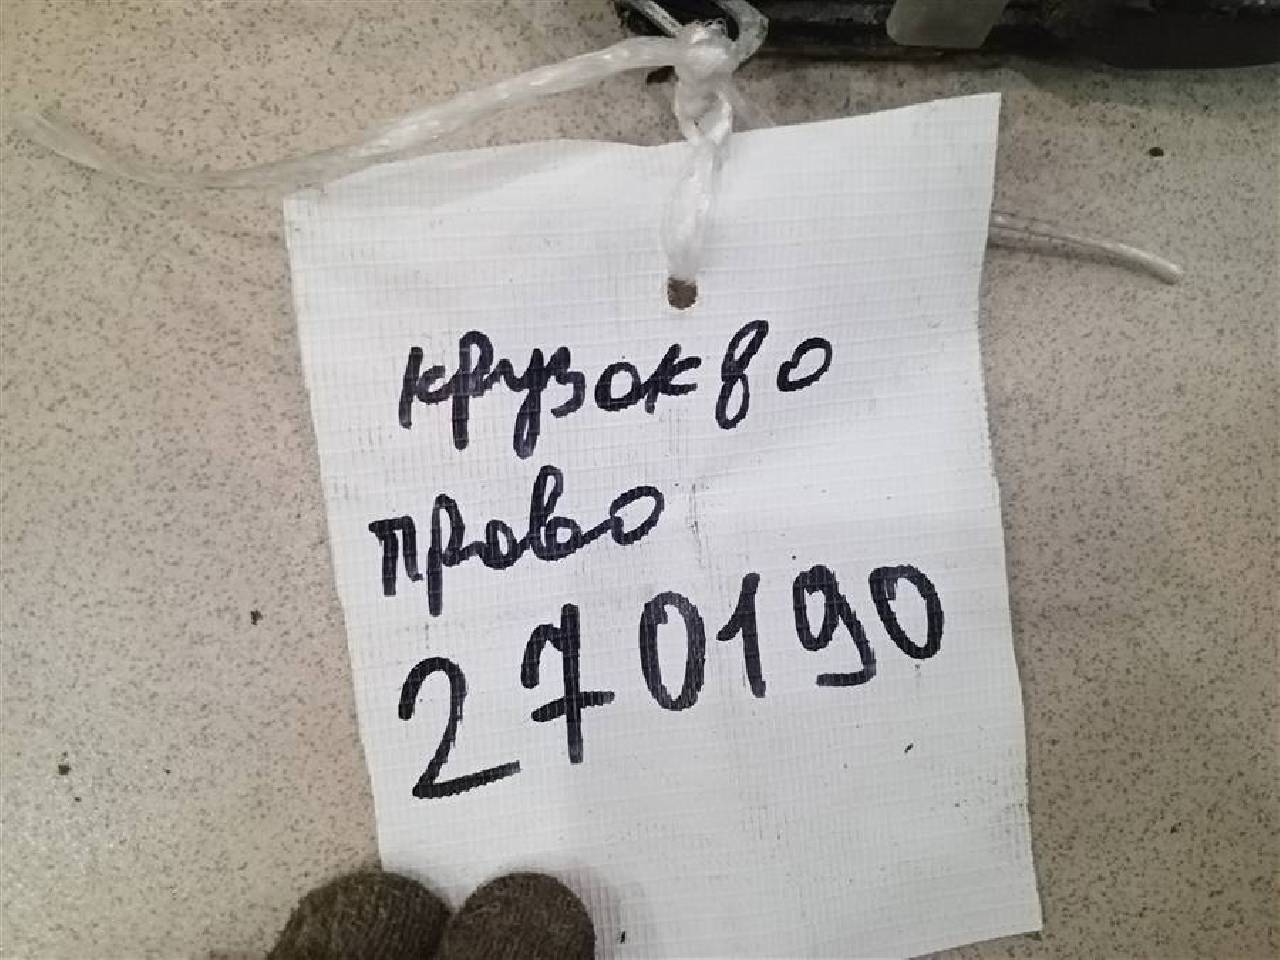 крузак 80
право
270190